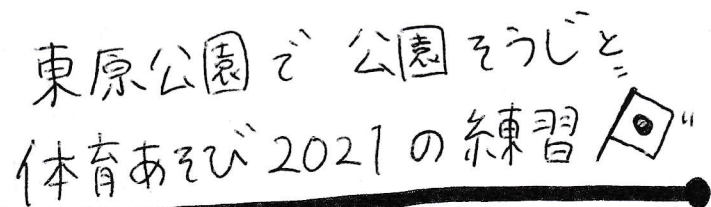 東原公園で 公園そうじと
体育あそび2021の練習